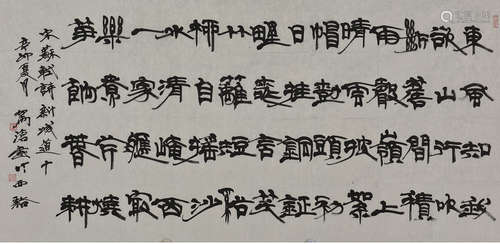 東風知我
欲山行吹
斷簷間積
雨聲嶺上
晴雲披絮
帽樹頭初
日掛銅鉦
野桃含笑
竹籬短溪
柳自搖沙
水清崦西
人家應最
樂煮芹燒
筍餉春耕
宋蘇軾詩新城道中
辛卯夏月